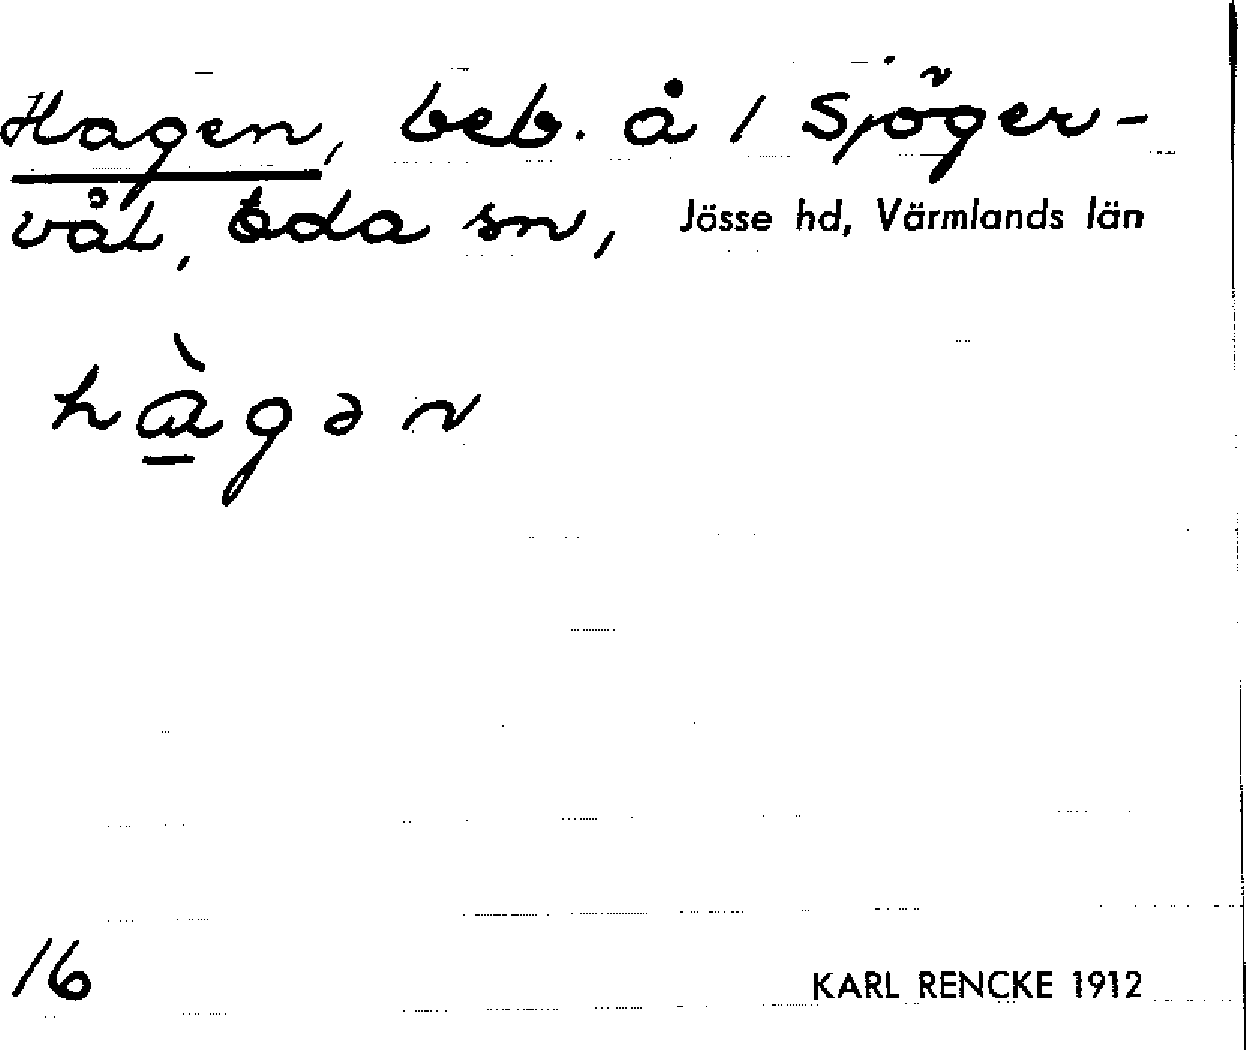 Hagen, beb. å 1 Sjöger-
vål, Eda sn, Jösse hd, Värmlands län
hàgən
16
KARL RENCKE 1912